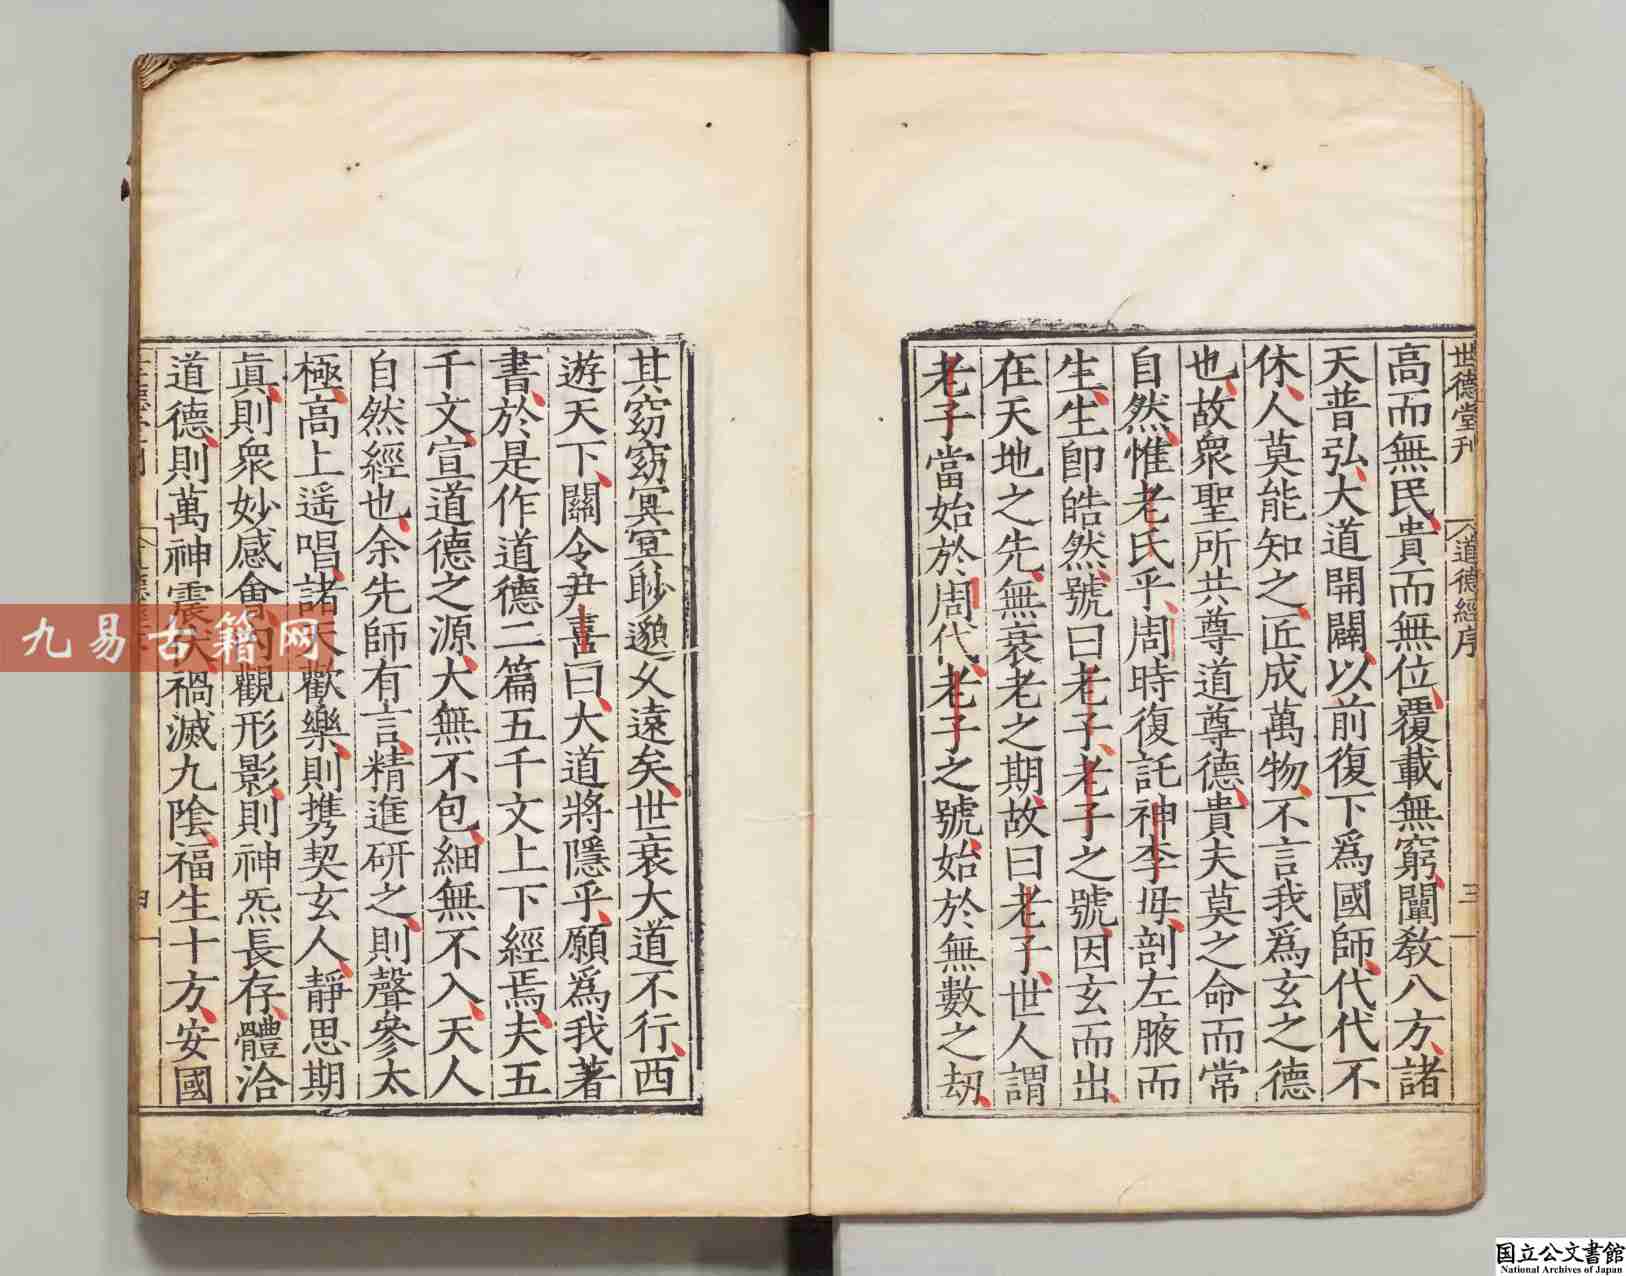 世德堂刊
道德經序
三
高而無民貴而無位覆載無窮闡教八方諸
天普弘大道開闢以前復下爲國師代代不
休人莫能知之匠成萬物不言我爲玄之德
也故衆聖所共尊道尊德貴夫莫之命而常
自然惟老氏乎周時復託神李母剖左腋而
生生即皓然號曰老子老子之號因玄而出
在天地之先無衰老之期故曰老子世人謂
老子當始於周代老子之號始於無數之刼
其窈窈冥冥眇邈久遠矣世衰大道不行西
遊天下關令尹喜曰大道將隱乎願爲我著
書於是作道德二篇五千文上下經焉夫五
千文宣道德之源大無不包細無不入天人
自然經也余先師有言精進研之則聲參太
極高上遥唱諸天歡樂則携契玄人靜思期
眞則衆妙感會內觀形影則神炁長存體洽
道德則萬神震伏禍滅九陰福生十方安國
九易古籍网
国立公文書館
National Archives of Japan